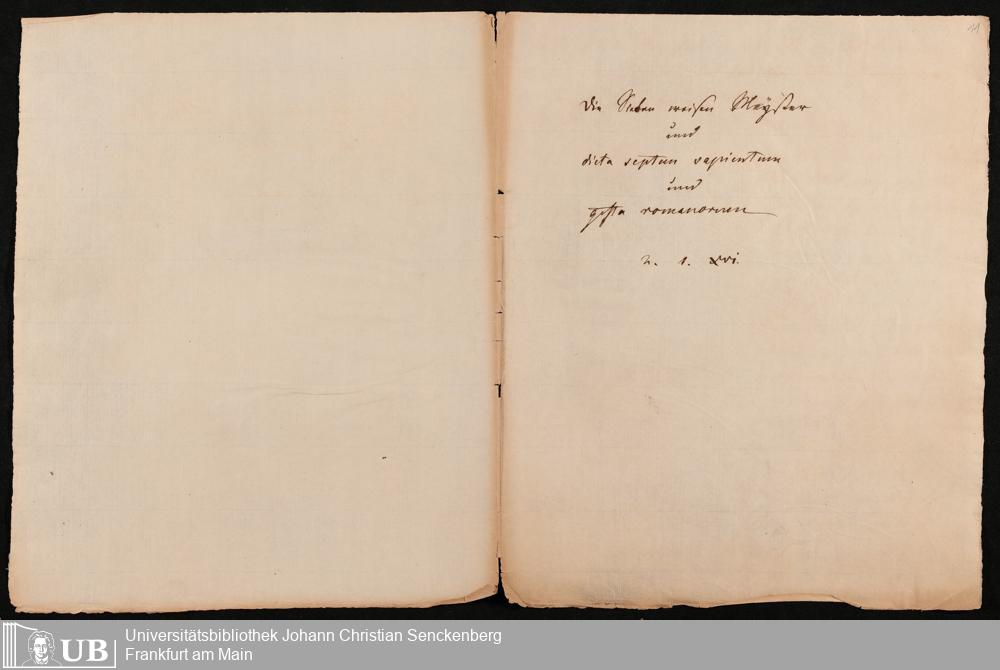 11
Die Sieben weisen Meÿster
und
dicta septem sapientum
und
gesta romanorum
2. 1. xvi.
UB
Universitätsbibliothek Johann Christian Senckenberg
Frankfurt am Main